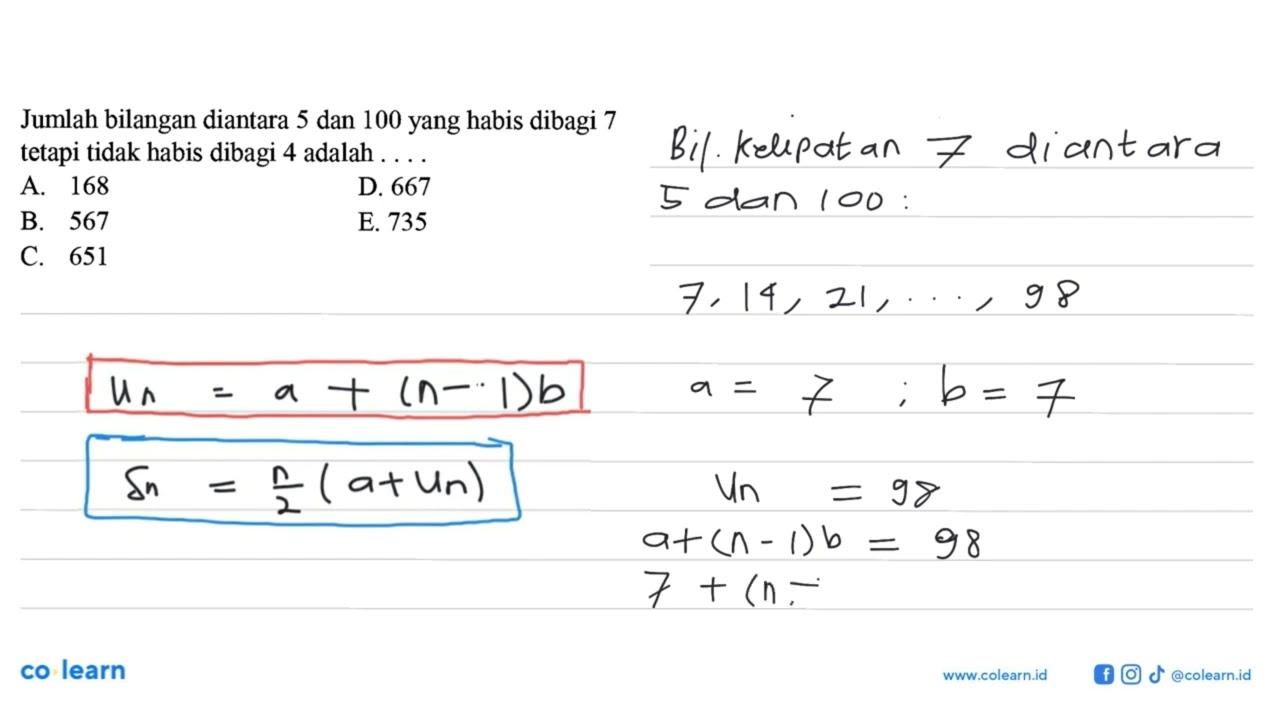 Jumlah bilangan diantara 5 dan 100 yang habis dibagi 7
tetapi tidak habis dibagi 4 adalah . . . .
A. 168
D. 667
B. 567
E. 735
C. 651
Un = a + (n - 1)b
Sn = n/2 (a + Un)
Bil. kelipatan 7 diantara
5 dan 100 :
7, 14, 21, ..., 98
a = 7 ; b = 7
Un = 98
a + (n - 1)b = 98
7 + (n -
co learn
www.colearn.id
@colearn.id